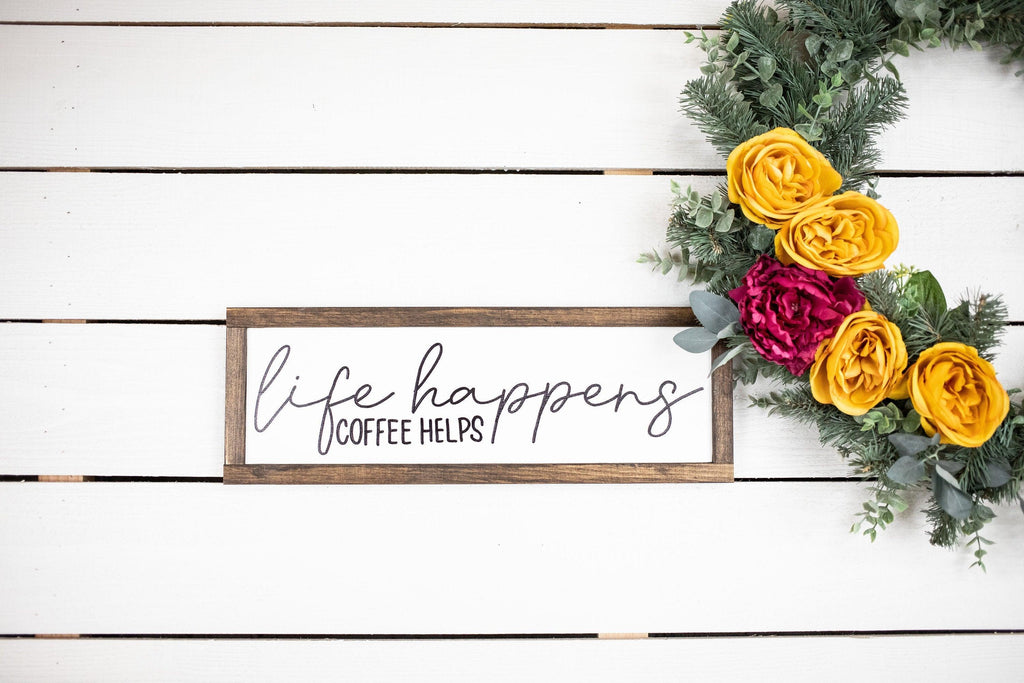 life happens
COFFEE HELPS